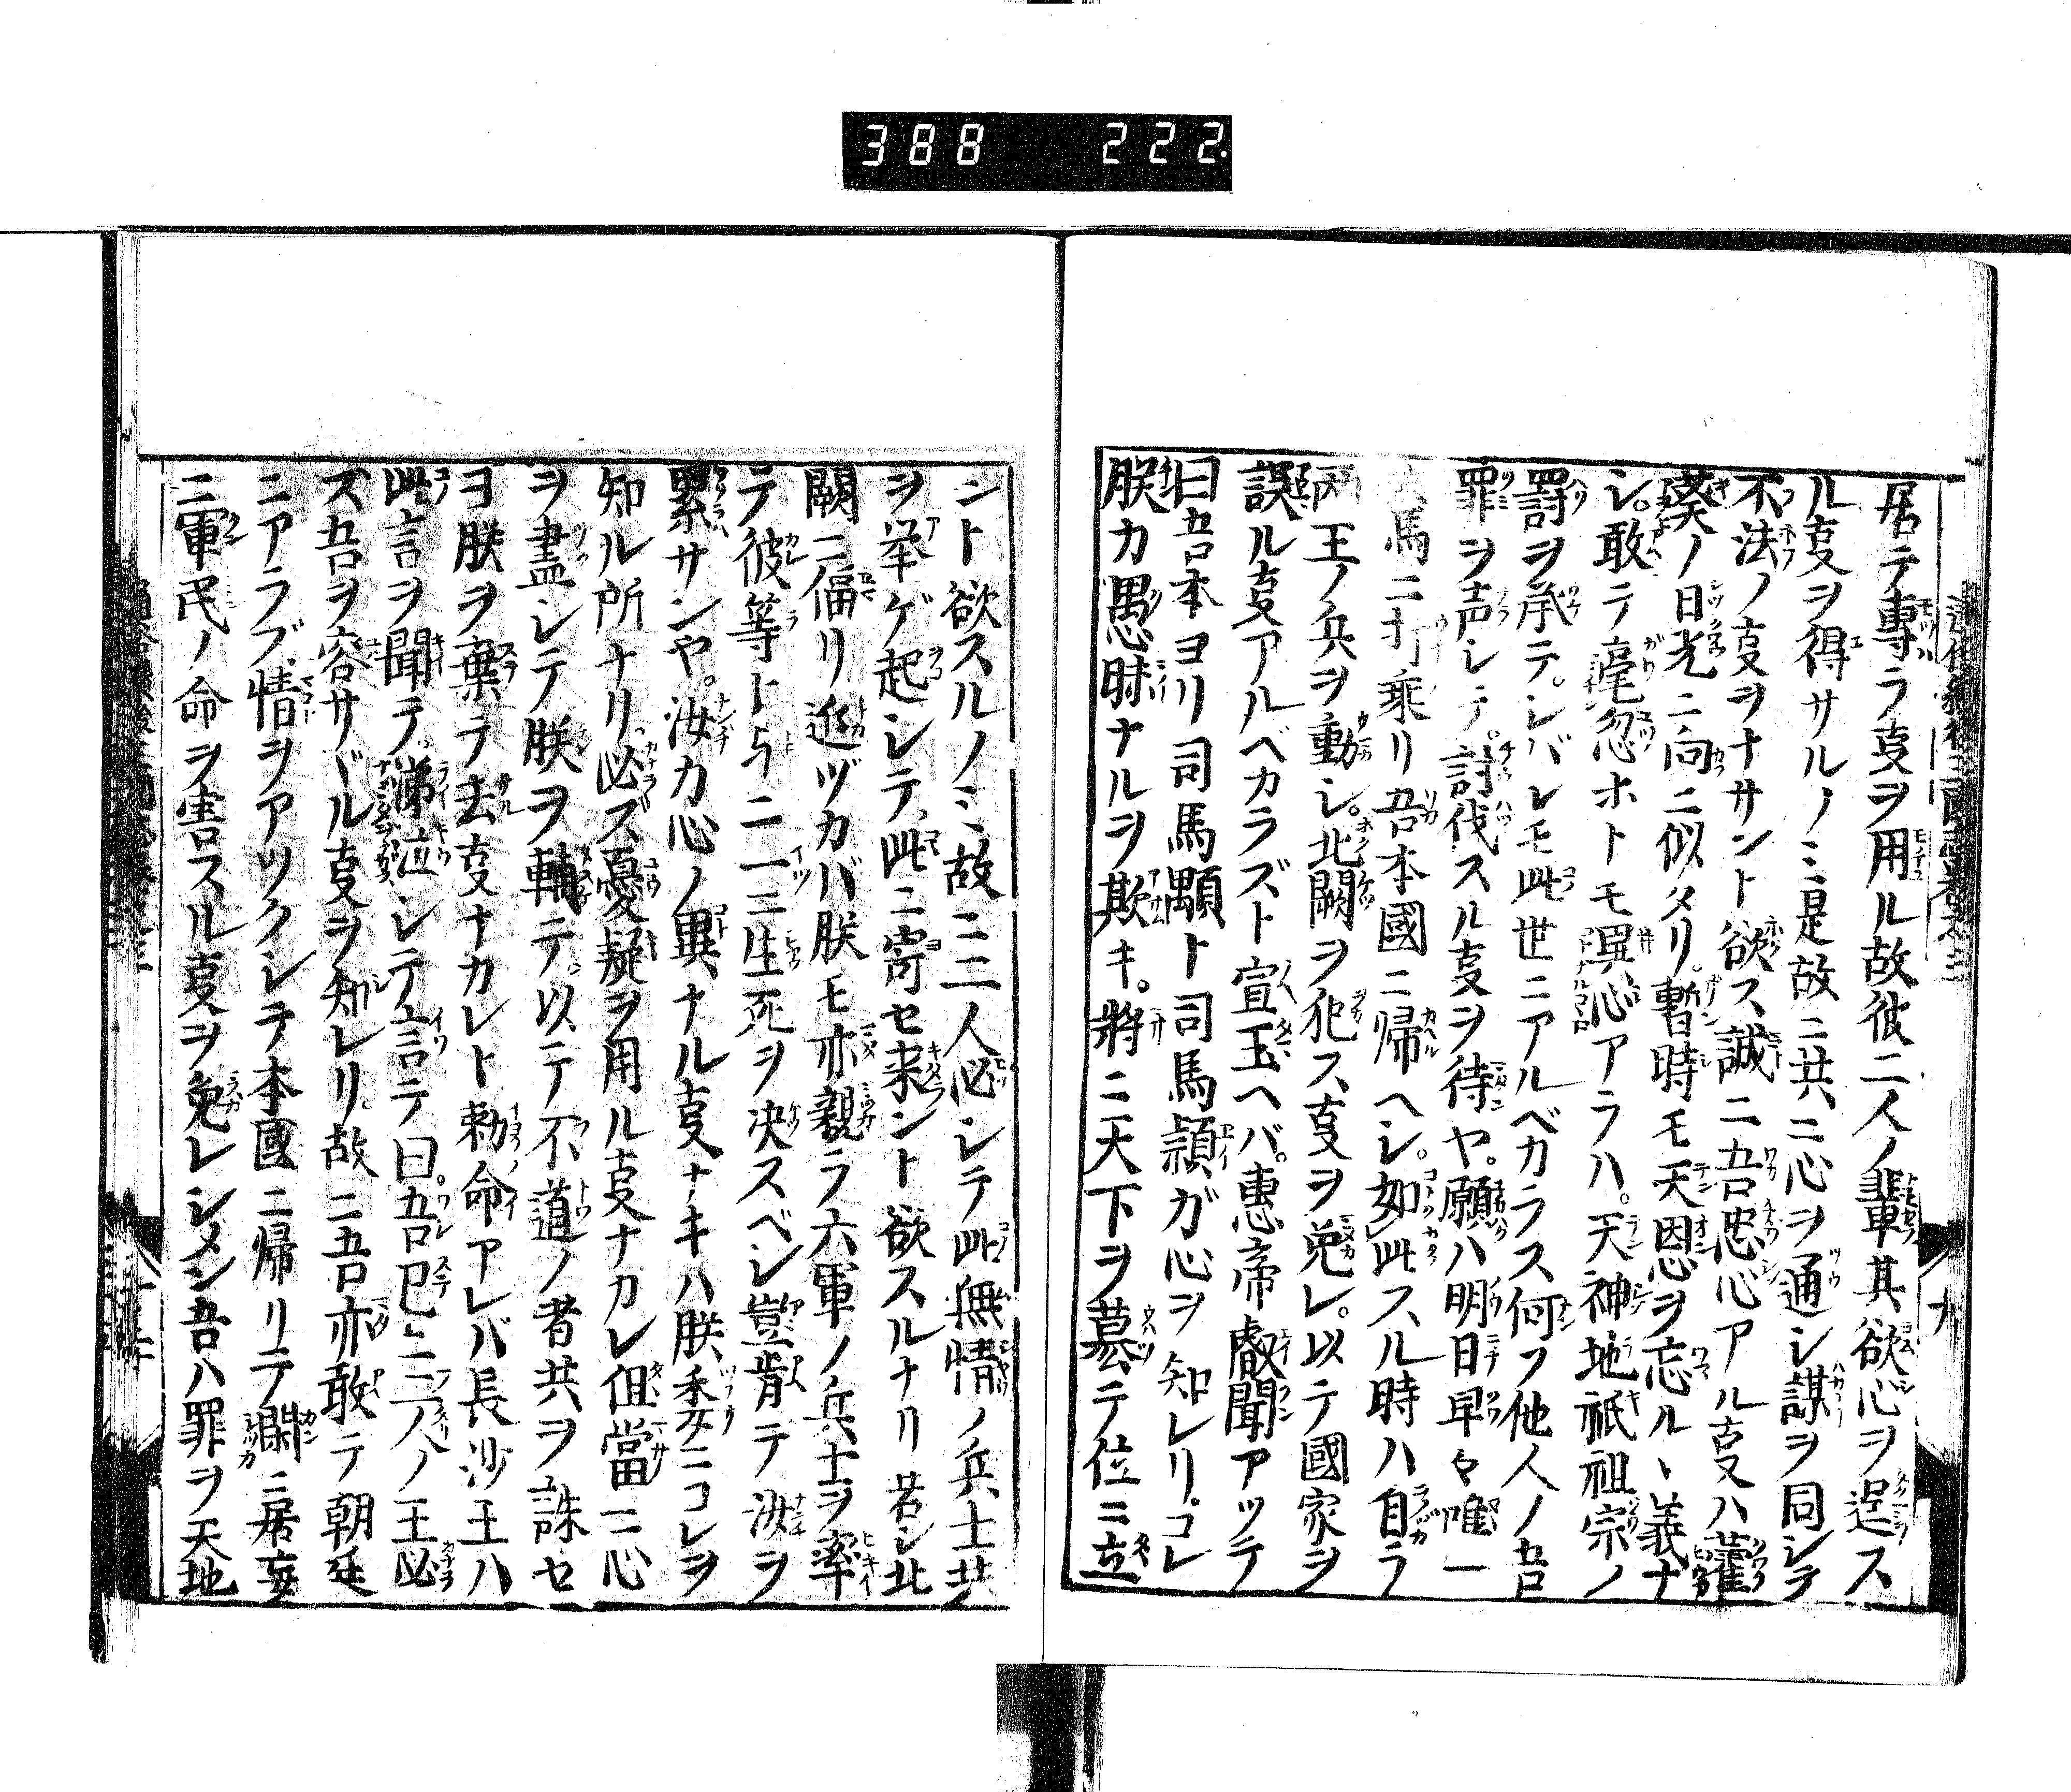 388 222.
居テ專ラ㕝ヲ用ル故彼二人ノ輩其欲心ヲ逞ス
ル㕝ヲ得サルノミ是故ニ共ニ心ヲ通シ謀ヲ同シテ
不法ノ㕝ヲナサント欲ス誠ニ吾忠心アル㕝ハ藿
葵ノ日光ニ向ニ似タリ暫時モ天恩ヲ忘ルヽ義ナ
シ敢テ毫忽ホトモ異心アラハ天神地祇祖宗ノ
罸ヲ承テシバレモ此世ニアルベカラス何ソ他人ノ吾
罪ヲ声シテ討伐スル㕝ヲ待ヤ願ハ明日早々唯一
馬ニ打乘リ吾本國ニ帰ヘシ如此スル時ハ自ラ
两王ノ兵ヲ動シ北闕ヲ犯ス㕝ヲ免レ以テ國家ヲ
誤ル㕝アルベカラズト宣玉ヘバ惠帝叡聞アツテ
曰吾本ヨリ司馬顒ト司馬頴ガ心ヲ知レリコレ
朕カ愚昧ナルヲ欺キ將ニ天下ヲ募テ位ニ立
ント欲スルノミ故ニ二人必シテ此無情ノ兵士共
ヲ举ゲ起シテ此ニ寄セ来ント欲スルナリ若シ北
闕ニ偪リ近ヅカバ朕モ亦親ラ六軍ノ兵士ヲ率
テ彼等ト与ニ一ニ生死ヲ决スベシ豈肯テ汝ヲ
累サンや汝カ心ノ異ナル㕝ナキハ朕委ニコレヲ
知ル所ナリ必ズ憂疑ヲ用ル㕝ナカレ但當ニ心
ヲ盡シテ朕ヲ輔テ以テ不道ノ者共ヲ誅セ
ヨ朕ヲ棄テ去㕝ナカレト勅命アレバ長沙王ハ
此言ヲ聞テ涕泣シテ言テ曰吾已ニ二人ノ王必
ス吾ヲ容サヾル㕝ヲ知レリ故ニ吾亦敢テ朝廷
ニアラズ情ヲアツクシテ本國ニ帰リテ㵎ニ居妄
ニ軍民ノ命ヲ害スル㕝ヲ免レシメン吾ハ罪ヲ天地